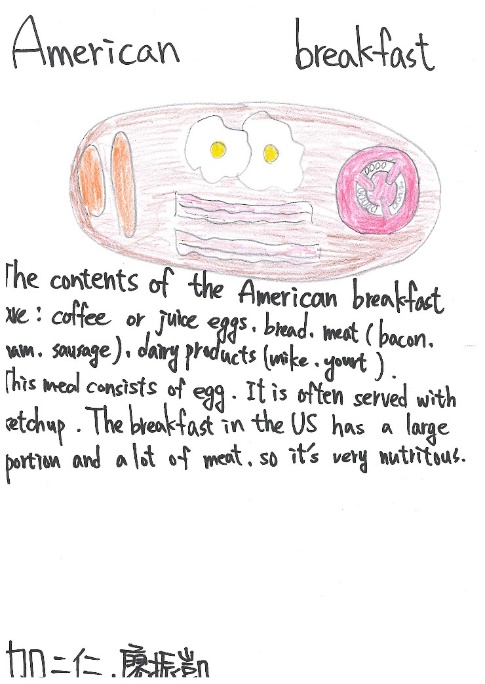 American breakfast
The contents of the American breakfast
are: coffee or juice eggs. bread. meat (bacon.
ham. sausage). dairy products (milke. yourt).
This meal consists of egg. It is often served with
ketchup. The breakfast in the US has a large
portion and a lot of meat. so it's very nutritous.
加二仁.廖振凱